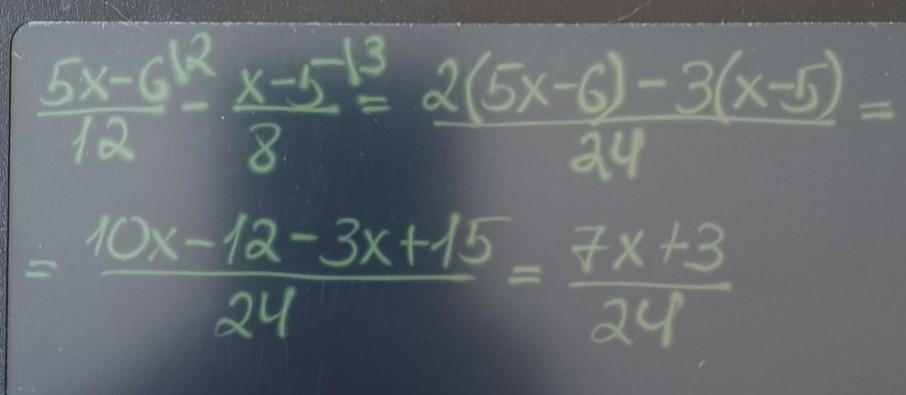 (5x-6\2)/12 - (x-5\3)/8 = (2(5x-6)-3(x-5))/24 =
= (10x-12-3x+15)/24 = (7x+3)/24